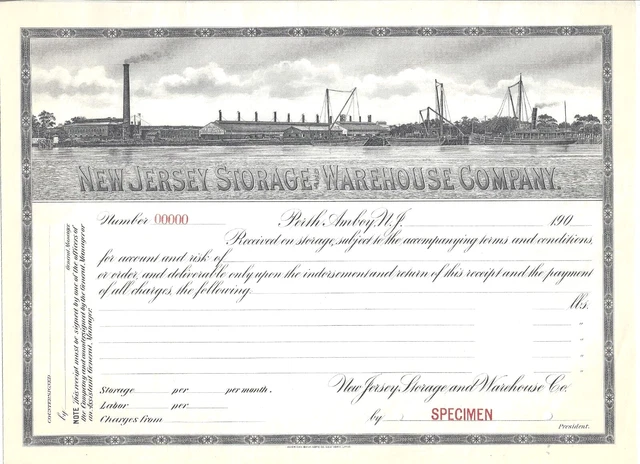 NEW JERSEY STORAGE AND WAREHOUSE COMPANY.
Number 00000 Perth Amboy, N.J. 190
Received on storage, subject to the accompanying terms and conditions,
for account and risk of
or order, and deliverable only upon the indorsement and return of this receipt and the payment
of all charges, the following
lbs.
"
"
"
"
Storage per per month.
Labor per
Charges from
New Jersey Storage and Warehouse Co.
by SPECIMEN
President.
COUNTERSIGNED
by
General Manager
NOTE This receipt must be signed by one of the officers of
the Company and countersigned by the General Manager or
an Assistant General Manager.